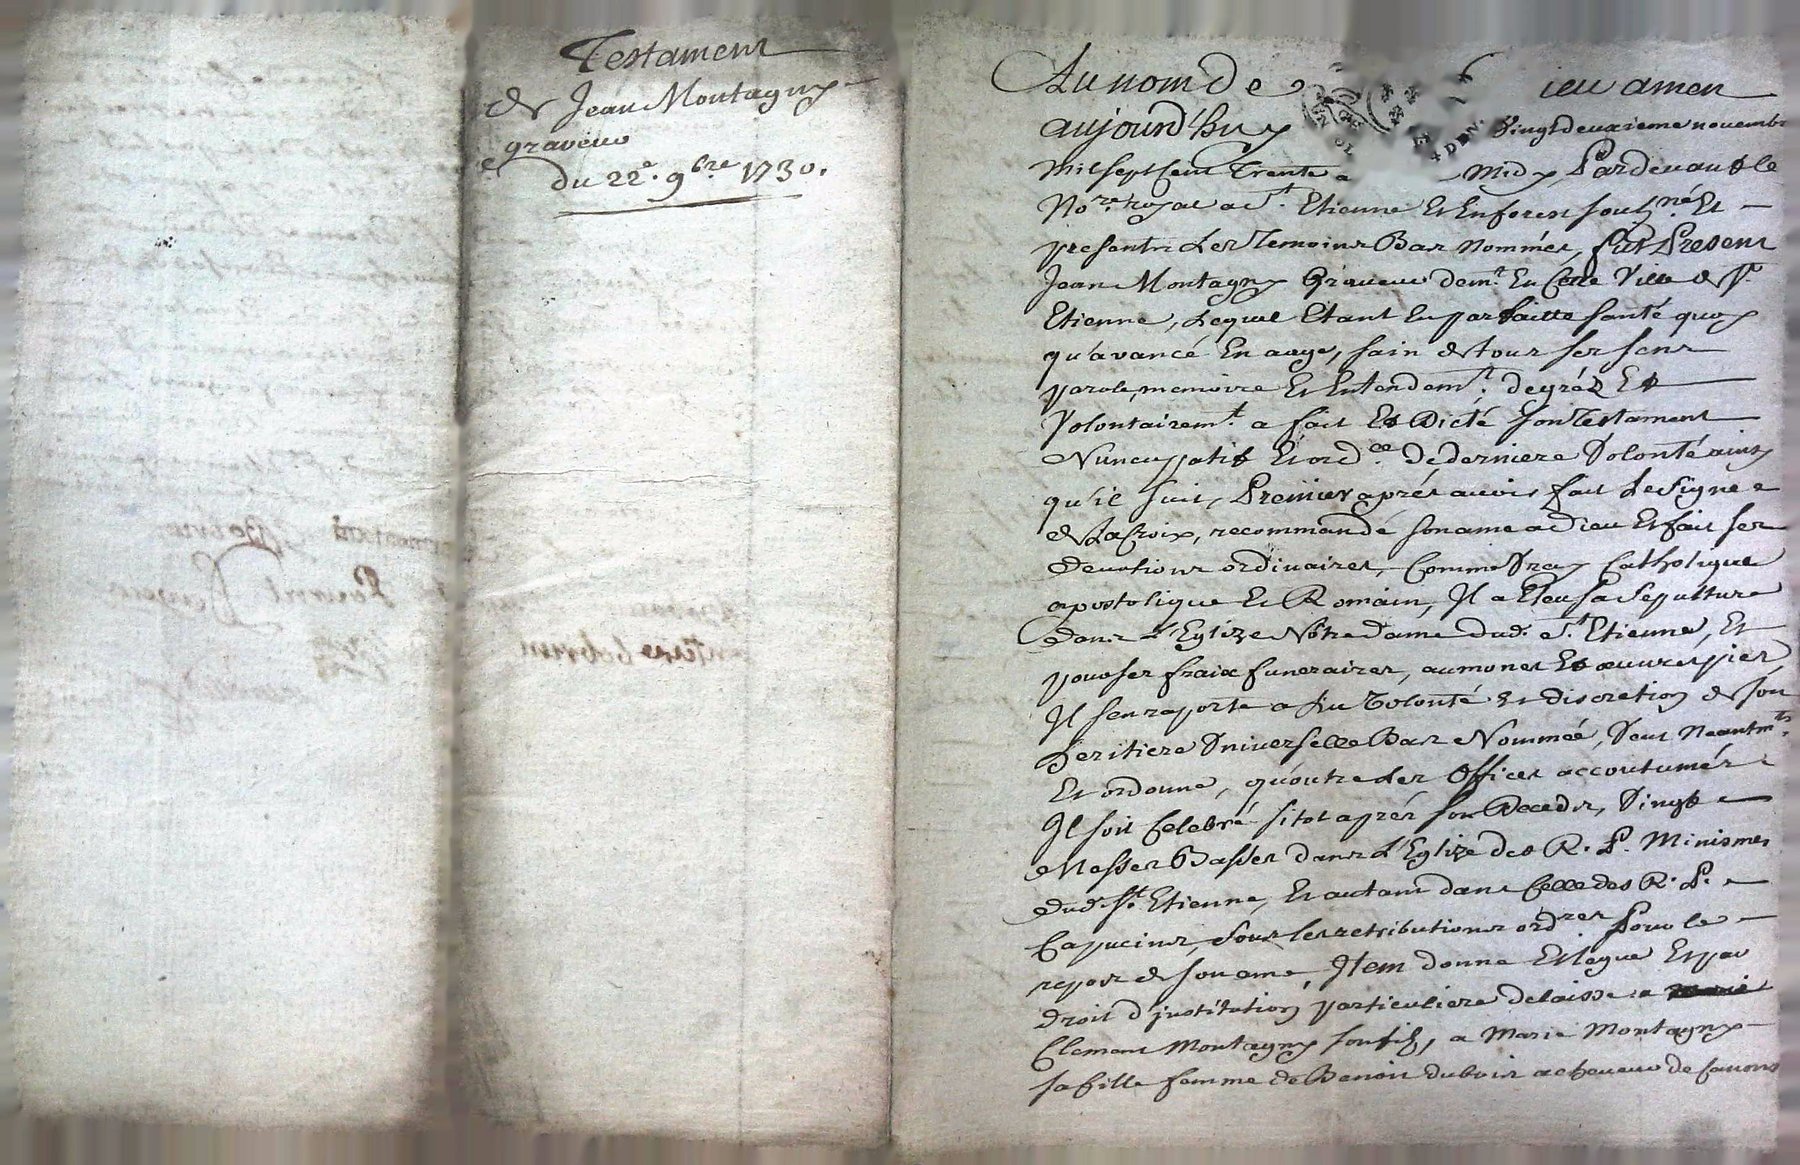 Testament
de Jean Montagny
graveur
du 22e. 9bre 1730.
Au nom de Dieu amen
aujourd'huy vingt deuxieme novembre
mil sept Cent Trente a midy, Pardevant le
No.re royal a St. Etienne Et En forest soubz.né Et
presents Les Temoins Bas nommés, fut Present
Jean Montagny Graveur dem.t En Cette Ville de St.
Etienne, Lequel Etant En parfaitte santé quoy
qu'avancé En aage, sain de tous ses sens
parole, memoire Et Entendem.t. de gréz Et
Volontairem.t. a fait Et Dicté son Testament
Nuncupatif Et ord.ce De derniere Volonté ainsy
qu'il suit, Premier après avoir fait Le Signe
de La Croix, recommandé son ame a dieu Et fait ses
devotions ordinaires, Comme Vray Catholique
apostolique Et Romain, Il a Eleu sa Sepulture
dans L'Eglize Nôtre Dame dud. St. Etienne, Et
pour ses fraix funeraires, aumones Et œuvres pies,
Il s'en raporte a La Volonté Et discretion de son
heritiere Universelle Bas Nommée, Veut Neantm.ts
Et ordonne, qu'outre Les Offices accoutumés
Il soit Celebré sitot aprés son Decedz, Vingt
Messes Basses dans L'Eglize des R. P. Minismes
dud. St. Etienne, Et autant dans Celle des R. P.
Capucins, sous Les retributions ord.res Pour le
repos de son ame, Item donne Et legue Et par
droit d'institution particuliere delaisse a
Clement Montagny son fils, a Marie Montagny
sa fille femme de Benoit dubois acheveur de canons